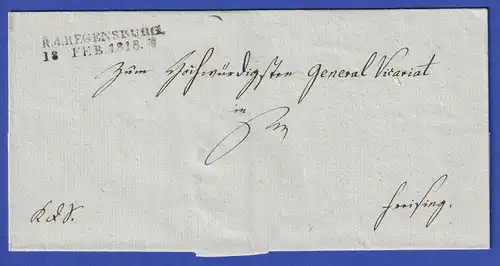 R.4.REGENSBURG.
18 FEB.1818.
Zum Hochwürdigsten General Vicariat
in
K d S.
Freising.